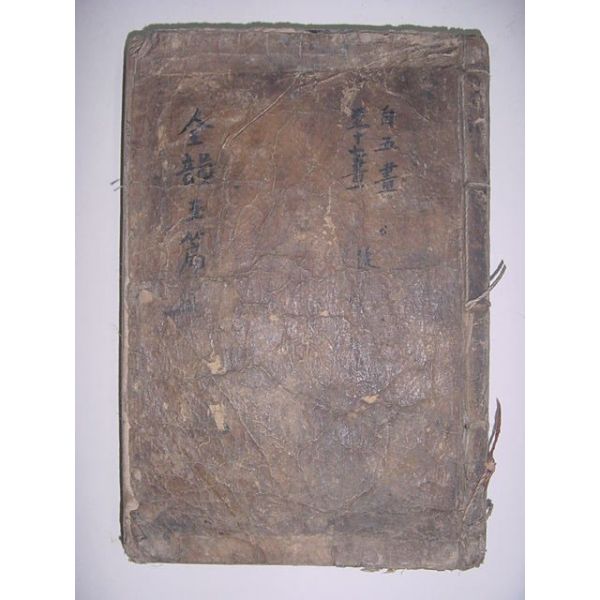 自五畫
至十七畫
全韻玉篇